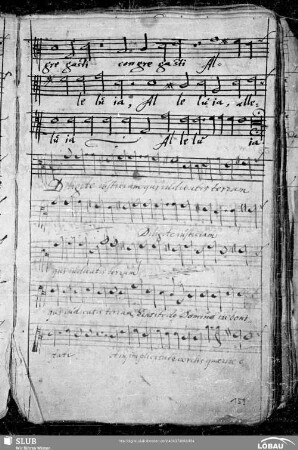 gre gasti con gre gasti Al-
le lu ia, Al le lu ia, alle,
lu ia Al le lu ia
Diligite iustitiam qui iudicatis terram
Diligite iustitiam
qui iudicatis terram
qui iudicatis terram Sentite de Domino in boni
tate
SLUB
Wir führen Wissen.
LÖBAU